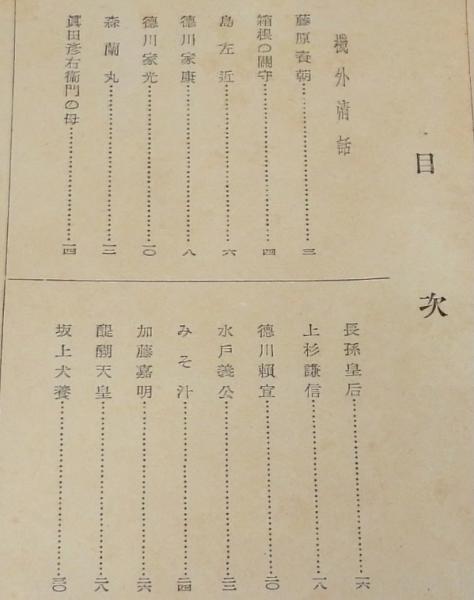 目次
機外清話
藤原春朝……三
箱根の關守……四
島左近……六
德川家康……八
德川家光……一〇
森蘭丸……一二
眞田彥右衞門の母……一四
長孫皇后……一六
上杉謙信……一八
德川賴宣……二〇
水戶義公……二三
みそ汁……二四
加藤嘉明……二六
醍醐天皇……二八
坂上犬養……三〇